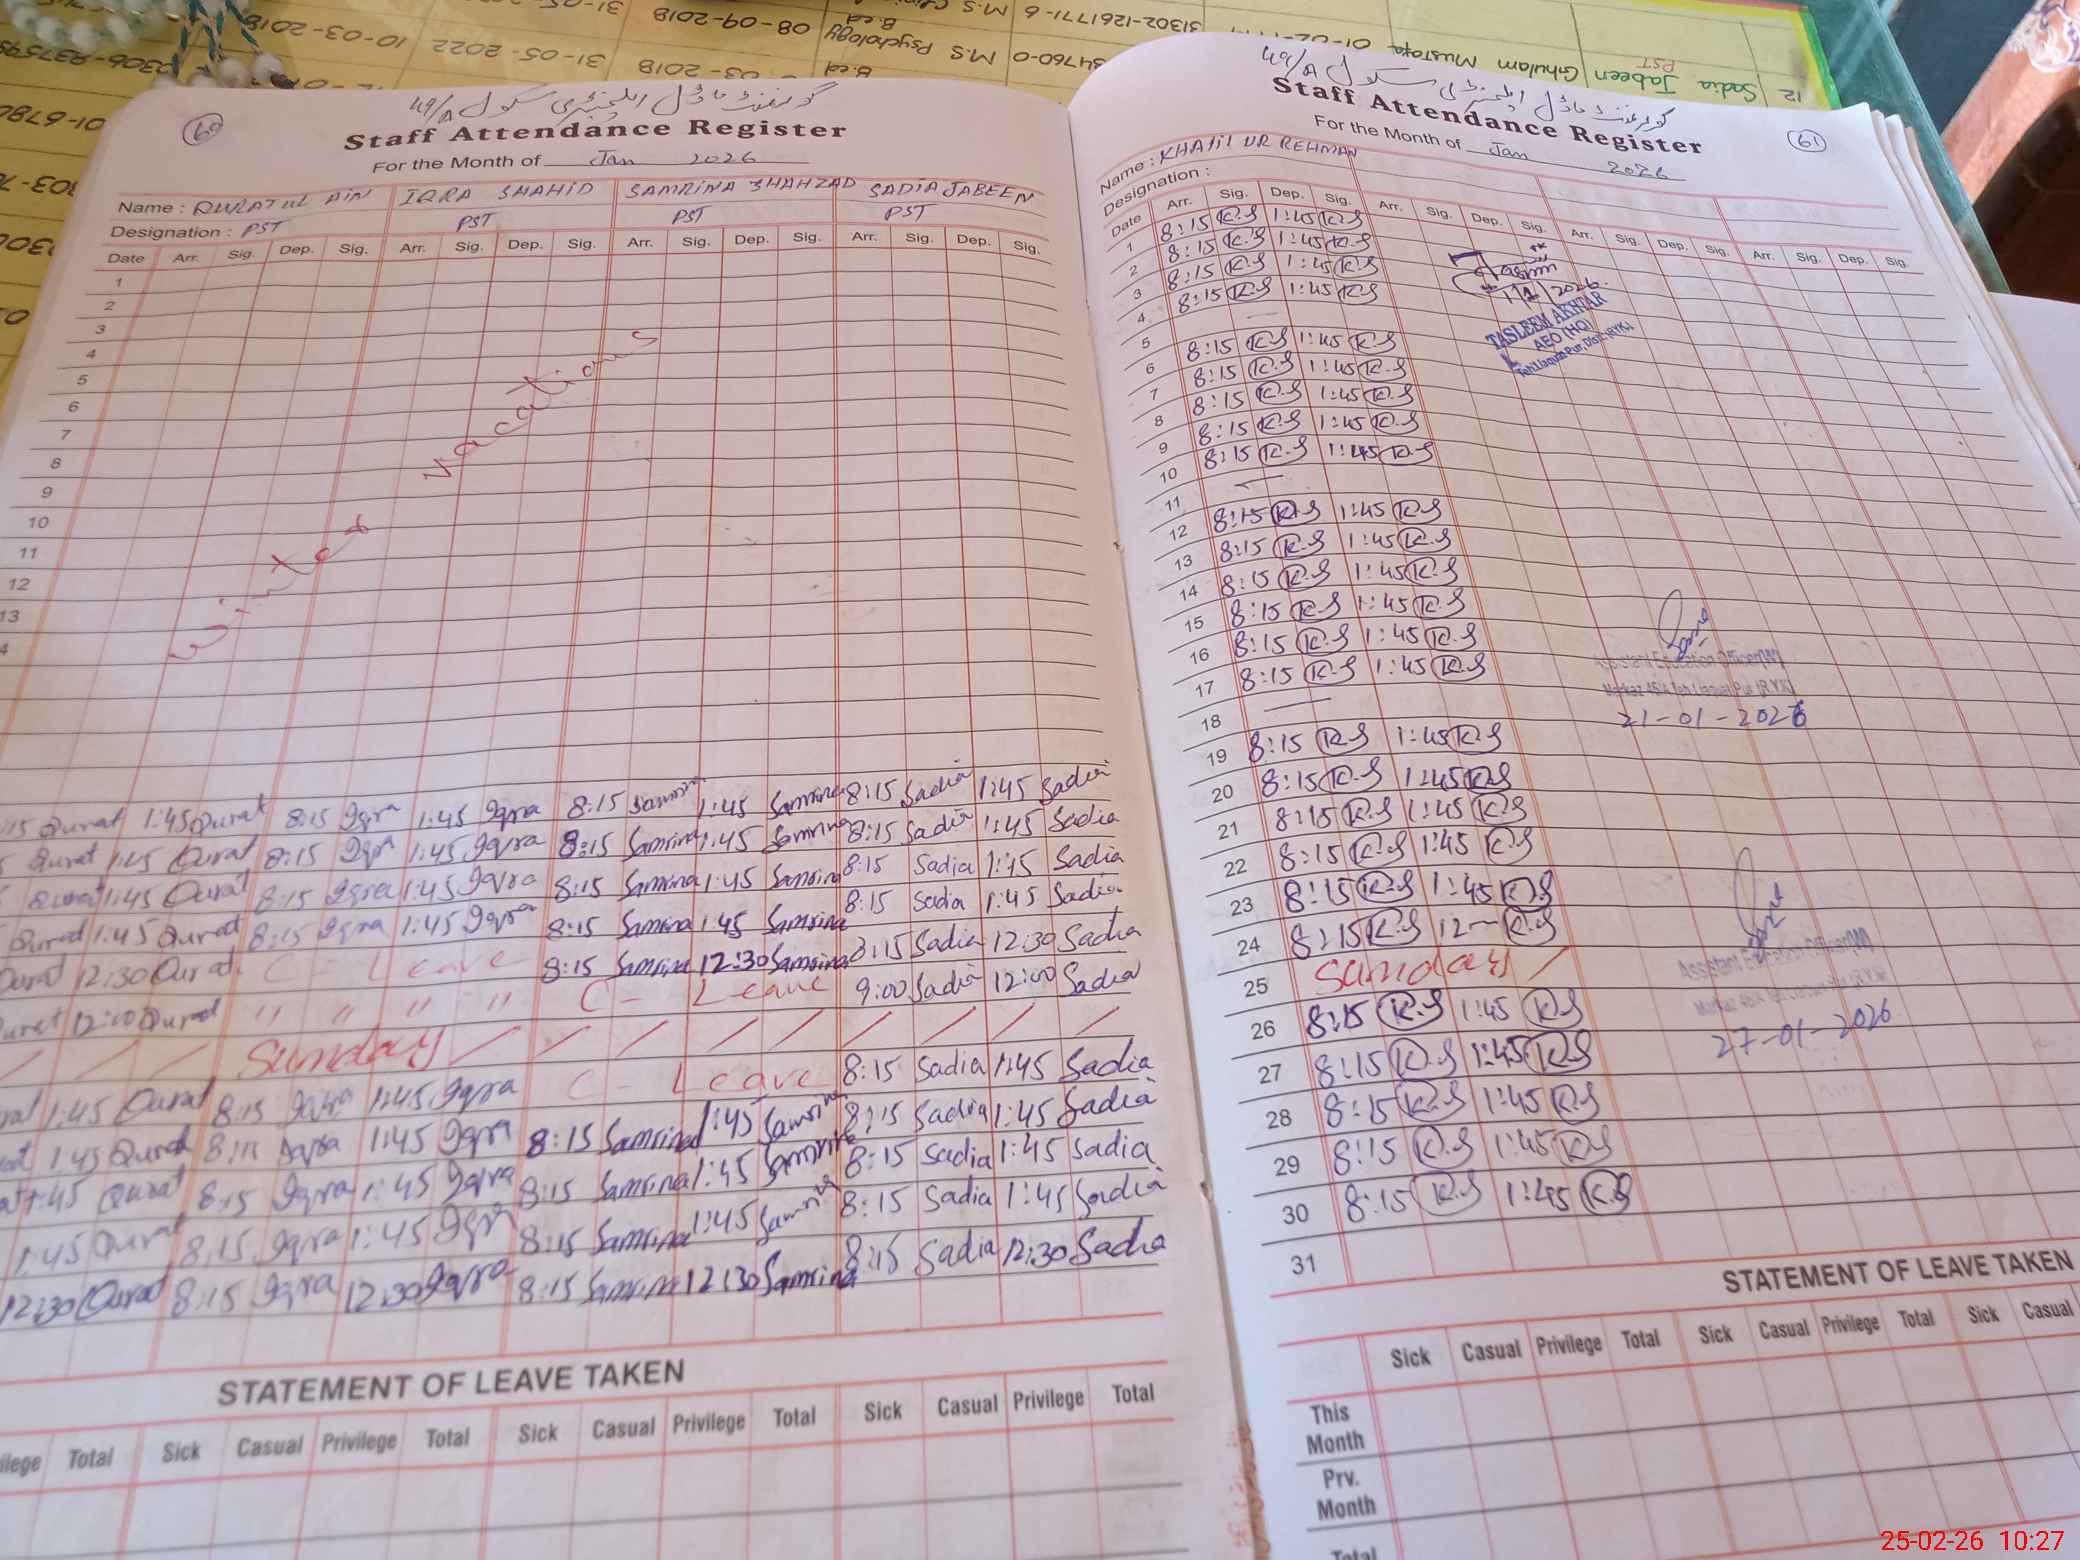 12 Sadia Jabeen Ghulam Mustafa
PST
31302-1261771-6 M.S
34760-0 M.S Psychology B.ed 08-09-2018
B.ed
31-05-2022 10-03-2018
60
گورنمنٹ ماڈل ایلیمنٹری سکول 49/A
Staff Attendance Register
For the Month of Jan 2026
Name : QURATUL AIN IQRA SHAHID SAMRINA SHAHZAD SADIA JABEEN
Designation : PST PST PST PST
Date Arr. Sig. Dep. Sig. Arr. Sig. Dep. Sig. Arr. Sig. Dep. Sig. Arr. Sig. Dep. Sig.
1
2
3
4
5
6
7
8
9
10
11
12
13
4
Winter vacations
15 Qurat 1:45 Qurat 8:15 Iqra 1:45 Iqra 8:15 Samrina 1:45 Samrina 8:15 Sadia 1:45 Sadia
Qurat 1:45 Qurat 8:15 Iqra 1:45 Iqra 8:15 Samrina 1:45 Samrina 8:15 Sadia 1:45 Sadia
Qurat 1:45 Qurat 8:15 Iqra 1:45 Iqra 8:15 Samrina 1:45 Samrina 8:15 Sadia 1:45 Sadia
Qurat 1:45 Qurat 8:15 Iqra 1:45 Iqra 8:15 Samrina 1:45 Samrina 8:15 Sadia 1:45 Sadia
Qurat 12:30 Qurat C - Leave 8:15 Samrina 12:30 Samrina 8:15 Sadia 12:30 Sadia
Qurat 12:00 Qurat " " " " C - Leave 9:00 Sadia 12:00 Sadia
/ / / Sunday / / / / / / / /
1:45 Qurat 8:15 Iqra 1:45 Iqra C - Leave 8:15 Sadia 1:45 Sadia
1:45 Qurat 8:15 Iqra 1:45 Iqra 8:15 Samrina 1:45 Samrina 8:15 Sadia 1:45 Sadia
1:45 Qurat 8:15 Iqra 1:45 Iqra 8:15 Samrina 1:45 Samrina 8:15 Sadia 1:45 Sadia
1:45 Qurat 8:15 Iqra 1:45 Iqra 8:15 Samrina 1:45 Samrina 8:15 Sadia 1:45 Sadia
12:30 Qurat 8:15 Iqra 12:30 Iqra 8:15 Samrina 12:30 Samrina 8:15 Sadia 12:30 Sadia
STATEMENT OF LEAVE TAKEN
ilege Total Sick Casual Privilege Total Sick Casual Privilege Total Sick Casual Privilege Total
61
گورنمنٹ ماڈل ایلیمنٹری سکول 49/A
Staff Attendance Register
For the Month of Jan 2026
Name : KHALIL UR REHMAN
Designation :
Date Arr. Sig. Dep. Sig. Arr. Sig. Dep. Sig. Arr. Sig. Dep. Sig. Arr. Sig. Dep. Sig.
1 8:15 K.S 1:45 K.S
2 8:15 K.S 1:45 K.S
3 8:15 K.S 1:45 K.S
4 8:15 K.S 1:45 K.S
5 —
6 8:15 K.S 1:45 K.S
7 8:15 K.S 1:45 K.S
8 8:15 K.S 1:45 K.S
9 8:15 K.S 1:45 K.S
10 8:15 K.S 1:45 K.S
11 —
12 8:15 K.S 1:45 K.S
13 8:15 K.S 1:45 K.S
14 8:15 K.S 1:45 K.S
15 8:15 K.S 1:45 K.S
16 8:15 K.S 1:45 K.S
17 8:15 K.S 1:45 K.S
18 —
19 8:15 K.S 1:45 K.S
20 8:15 K.S 1:45 K.S
21 8:15 K.S 1:45 K.S
22 8:15 K.S 1:45 K.S
23 8:15 K.S 1:45 K.S
24 8:15 K.S 12— K.S
25 Sunday /
26 8:15 K.S 1:45 K.S
27 8:15 K.S 1:45 K.S
28 8:15 K.S 1:45 K.S
29 8:15 K.S 1:45 K.S
30 8:15 K.S 1:45 K.S
31
2026
TASLEEM AKHTAR
AEO (HQ)
Teh. Liaquat Pur, Distt. (RYK)
Assistant Education Officer(M)
Markaz 49/A Teh Liaquat Pur (R.Y.K)
21-01-2026
Assistant Education Officer(M)
27-01-2026
STATEMENT OF LEAVE TAKEN
Sick Casual Privilege Total Sick Casual Privilege Total Sick Casual
This Month
Prv. Month
Total
25-02-26 10:27